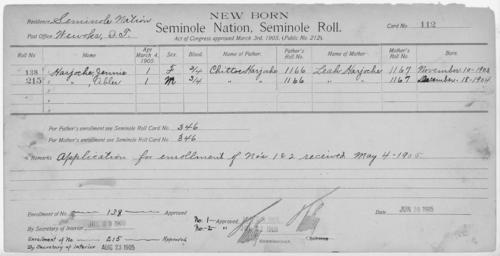 NEW BORN
Residence, Seminole Nation
Seminole Nation, Seminole Roll.
Card No. 112
Post Office, Wewoka, I.T.
Act of Congress approved March 3rd, 1905, (Public No. 212).
Roll No. Name Age March 4, 1905 Sex. Blood. Name of Father. Father's Roll No. Name of Mother. Mother's Roll No. Born.
138 Harjoche, Jennie 1 F 3/4 Chittoe Harjoche 1166 Leah Harjoche 1167 November 10-1903
215 " , 1 M 3/4 " " 1166 " " 1167 December 18-1904
For Father's enrollment see Seminole Roll Card No. 346
For Mother's enrollment see Seminole Roll Card No. 346
Remarks: Application for enrollment of No's 1 & 2 received May 4-1905
Enrollment of No. 138 Approved No. 1-Approved
By Secretary of Interior 1905 No-2 " 1905 JUN 1905
Enrollment of No. 215 Approved
By Secretary of Interior AUG 23 1905